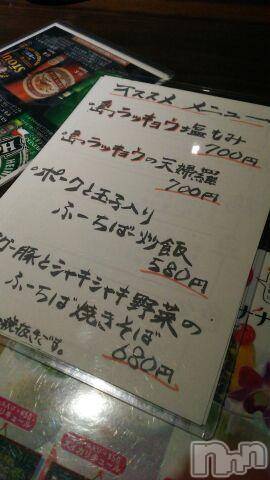 オススメ メニュー
・島ラッキョウ塩もみ
700円
・島ラッキョウの天婦羅
700円
・ポークと玉子入り
ふーちばー炒飯
580円
グー豚とシャキシャキ野菜の
ふーちば焼きそば
680円
STOUT